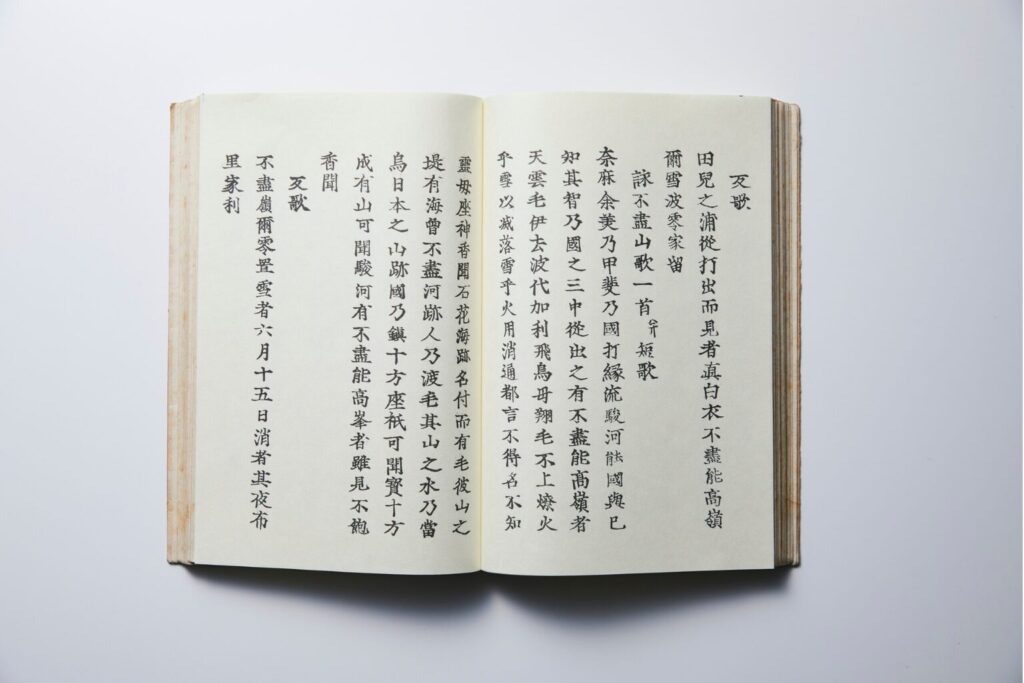 反歌
田兒之浦從打出而見者眞白衣不盡能高嶺
爾雪波零家留
詠不盡山歌一首并短歌
奈麻余美乃甲斐乃國打縁流駿河能國與已
知其智乃國之三中從出之有不盡能高嶺者
天雲毛伊去波代加利飛鳥母翔毛不上燎火
乎雪以滅落雪乎火用消通都言不得名不知
靈母座神香聞石花海跡名付而有毛彼山之
堤有海曾不盡河跡人乃渡毛其山之水乃當
烏日本之山跡國乃鎮十方座祇可聞寳十方
成有山可聞駿河有不盡能高峯者雖見不飽
香聞
反歌
不盡嶺爾零置雪者六月十五日消者其夜布
里家利